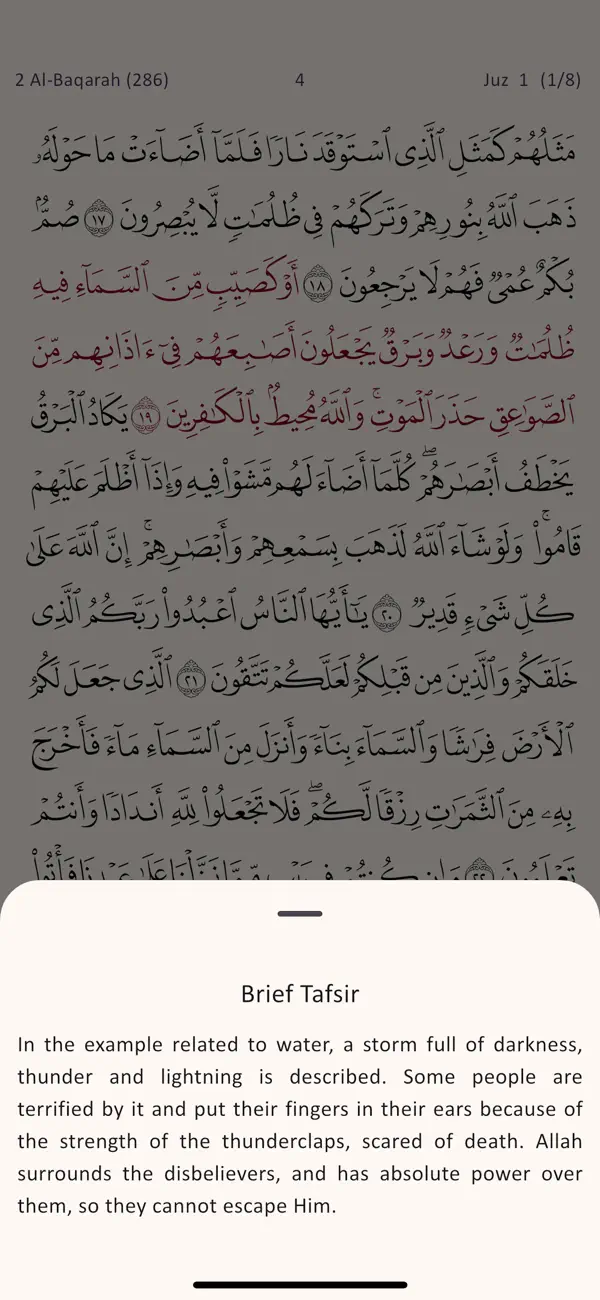 2 Al-Baqarah (286) 4 Juz 1 (1/8)
مَثَلُهُمْ كَمَثَلِ ٱلَّذِى ٱسْتَوْقَدَ نَارًا فَلَمَّآ أَضَآءَتْ مَا حَوْلَهُۥ
ذَهَبَ ٱللَّهُ بِنُورِهِمْ وَتَرَكَهُمْ فِى ظُلُمَٰتٍ لَّا يُبْصِرُونَ ١٧ صُمٌّۢ
بُكْمٌ عُمْىٌ فَهُمْ لَا يَرْجِعُونَ ١٨ أَوْ كَصَيِّبٍ مِّنَ ٱلسَّمَآءِ فِيهِ
ظُلُمَٰتٌ وَرَعْدٌ وَبَرْقٌ يَجْعَلُونَ أَصَٰبِعَهُمْ فِىٓ ءَاذَانِهِم مِّنَ
ٱلصَّوَٰعِقِ حَذَرَ ٱلْمَوْتِ ۚ وَٱللَّهُ مُحِيطٌۢ بِٱلْكَٰفِرِينَ ١٩ يَكَادُ ٱلْبَرْقُ
يَخْطَفُ أَبْصَٰرَهُمْ ۖ كُلَّمَآ أَضَآءَ لَهُم مَّشَوْا۟ فِيهِ وَإِذَآ أَظْلَمَ عَلَيْهِمْ
قَامُوا۟ ۚ وَلَوْ شَآءَ ٱللَّهُ لَذَهَبَ بِسَمْعِهِمْ وَأَبْصَٰرِهِمْ ۚ إِنَّ ٱللَّهَ عَلَىٰ
كُلِّ شَىْءٍ قَدِيرٌ ٢٠ يَٰٓأَيُّهَا ٱلنَّاسُ ٱعْبُدُوا۟ رَبَّكُمُ ٱلَّذِى
خَلَقَكُمْ وَٱلَّذِينَ مِن قَبْلِكُمْ لَعَلَّكُمْ تَتَّقُونَ ٢١ ٱلَّذِى جَعَلَ لَكُمُ
ٱلْأَرْضَ فِرَٰشًا وَٱلسَّمَآءَ بِنَآءً وَأَنزَلَ مِنَ ٱلسَّمَآءِ مَآءً فَأَخْرَجَ
بِهِۦ مِنَ ٱلثَّمَرَٰتِ رِزْقًا لَّكُمْ ۖ فَلَا تَجْعَلُوا۟ لِلَّهِ أَندَادًا وَأَنتُمْ
تَعْلَمُونَ ٢٢ وَإِن كُنتُمْ فِى رَيْبٍ مِّمَّا نَزَّلْنَا عَلَىٰ عَبْدِنَا فَأْتُوا۟
Brief Tafsir
In the example related to water, a storm full of darkness,
thunder and lightning is described. Some people are
terrified by it and put their fingers in their ears because of
the strength of the thunderclaps, scared of death. Allah
surrounds the disbelievers, and has absolute power over
them, so they cannot escape Him.